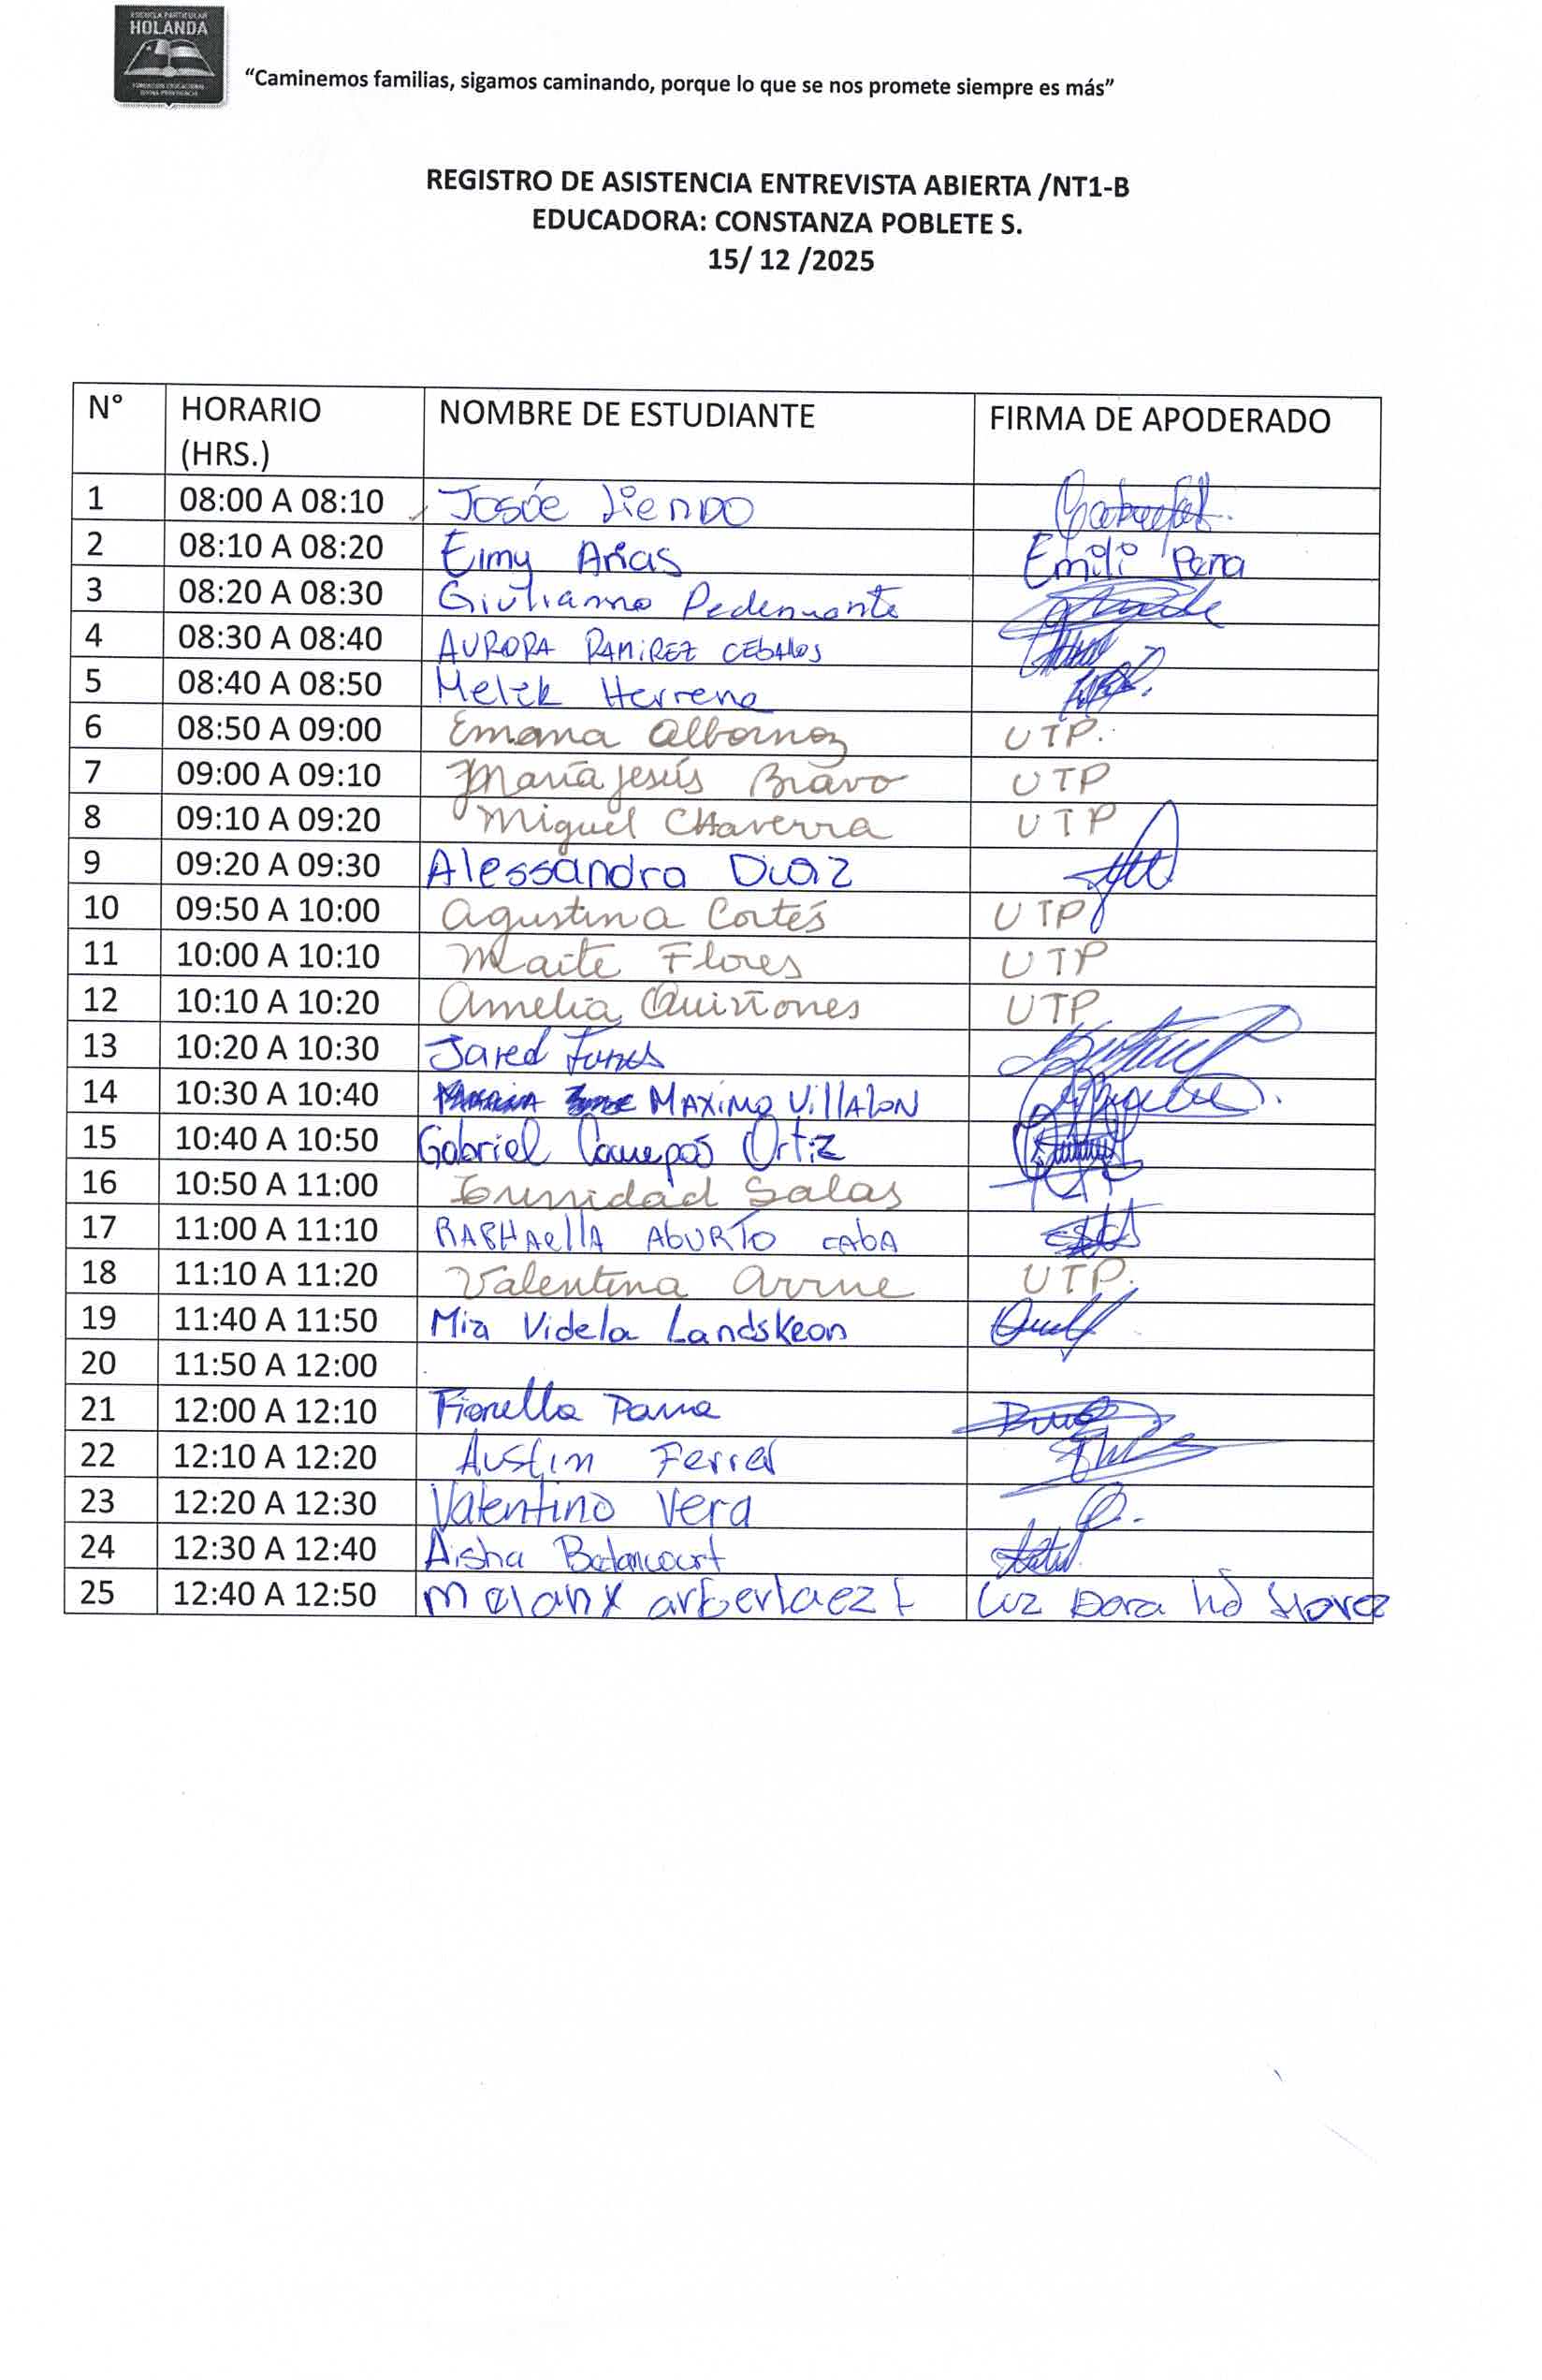 ESCUELA PARTICULAR
HOLANDA
FUNDACIÓN EDUCACIONAL
DIVINA PROVIDENCIA
“Caminemos familias, sigamos caminando, porque lo que se nos promete siempre es más”
REGISTRO DE ASISTENCIA ENTREVISTA ABIERTA /NT1-B
EDUCADORA: CONSTANZA POBLETE S.
15/ 12 /2025
N° HORARIO (HRS.) NOMBRE DE ESTUDIANTE FIRMA DE APODERADO
1 08:00 A 08:10 Josée Liendo
2 08:10 A 08:20 Eimy Arias Emili Pena
3 08:20 A 08:30 Giulianno Pedemonte
4 08:30 A 08:40 AURORA RAMIREZ CEbAllos
5 08:40 A 08:50 Melek Herrera
6 08:50 A 09:00 Emma Albornoz UTP.
7 09:00 A 09:10 María Jesús Bravo UTP
8 09:10 A 09:20 Miguel CHaverra UTP
9 09:20 A 09:30 Alessandra Diaz
10 09:50 A 10:00 Agustina Cortés UTP
11 10:00 A 10:10 Maite Flores UTP
12 10:10 A 10:20 Amelia Quiñones UTP
13 10:20 A 10:30 Jared Funes
14 10:30 A 10:40 MAXiMO VillAloN
15 10:40 A 10:50 Gabriel Ortiz
16 10:50 A 11:00 Trinidad Salas
17 11:00 A 11:10 ABURTO CAbA
18 11:10 A 11:20 Valentina UTP.
19 11:40 A 11:50 Mia Videla Landskron
20 11:50 A 12:00
21 12:00 A 12:10 Fiorella Parra
22 12:10 A 12:20 Austin Ferrel
23 12:20 A 12:30 Valentino Vera
24 12:30 A 12:40 Aisha Betancourt
25 12:40 A 12:50 Luz Dora